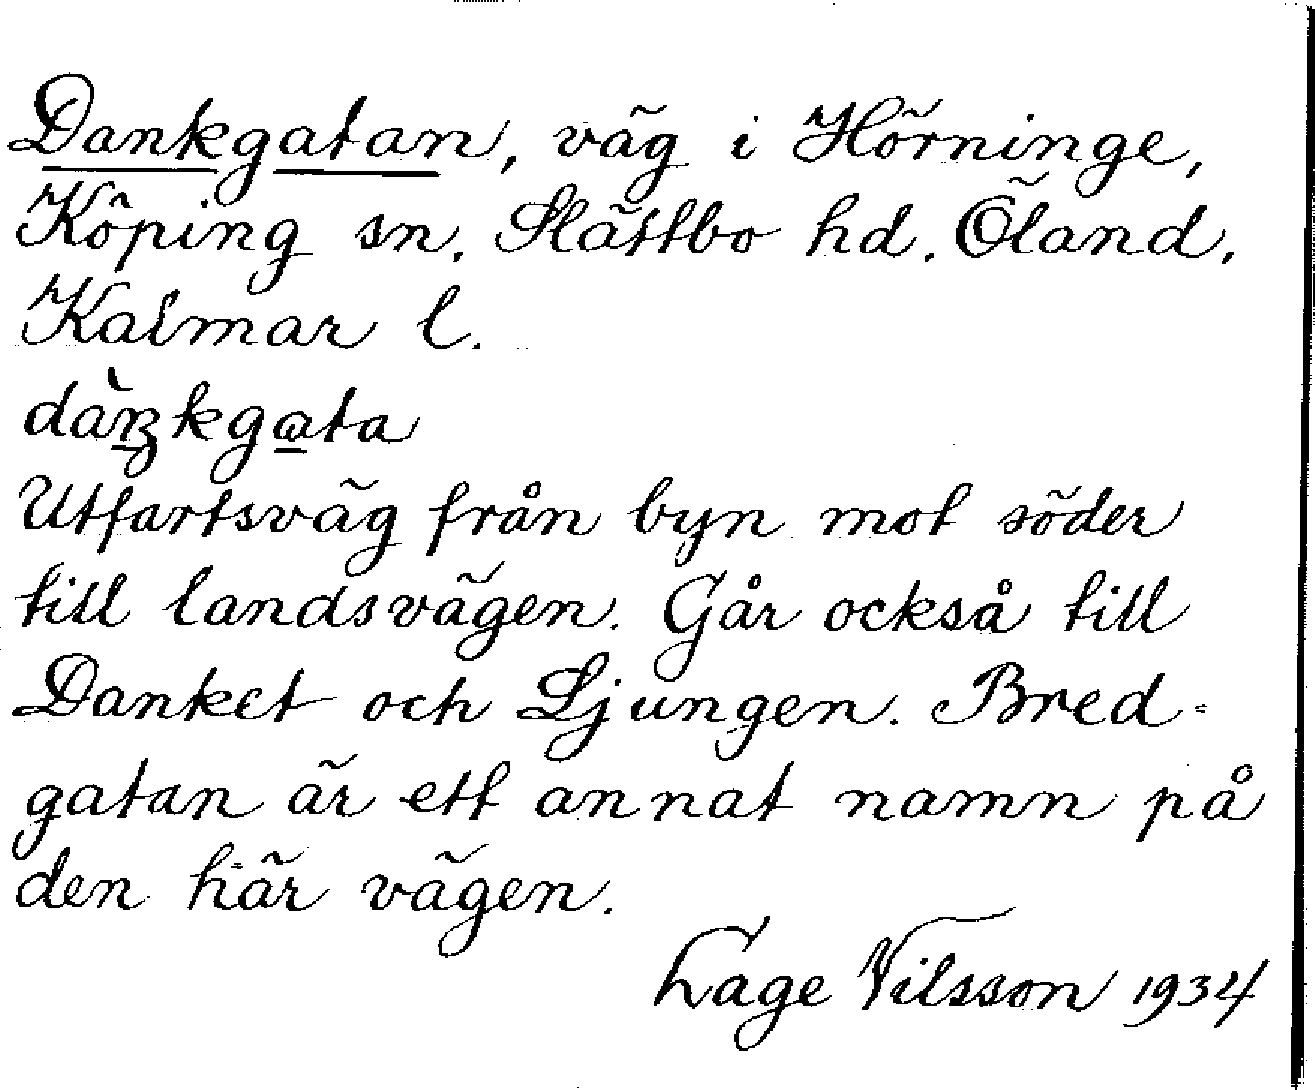 Dankgatan, väg i Hörninge,
Köping sn, Slättbo hd. Öland,
Kalmar l.
dàŋkgata
Utfartsväg från byn mot söder
till landsvägen. Går också till
Danket och Ljungen. Bred-
gatan är ett annat namn på
den här vägen.
Lage Nilsson 1934